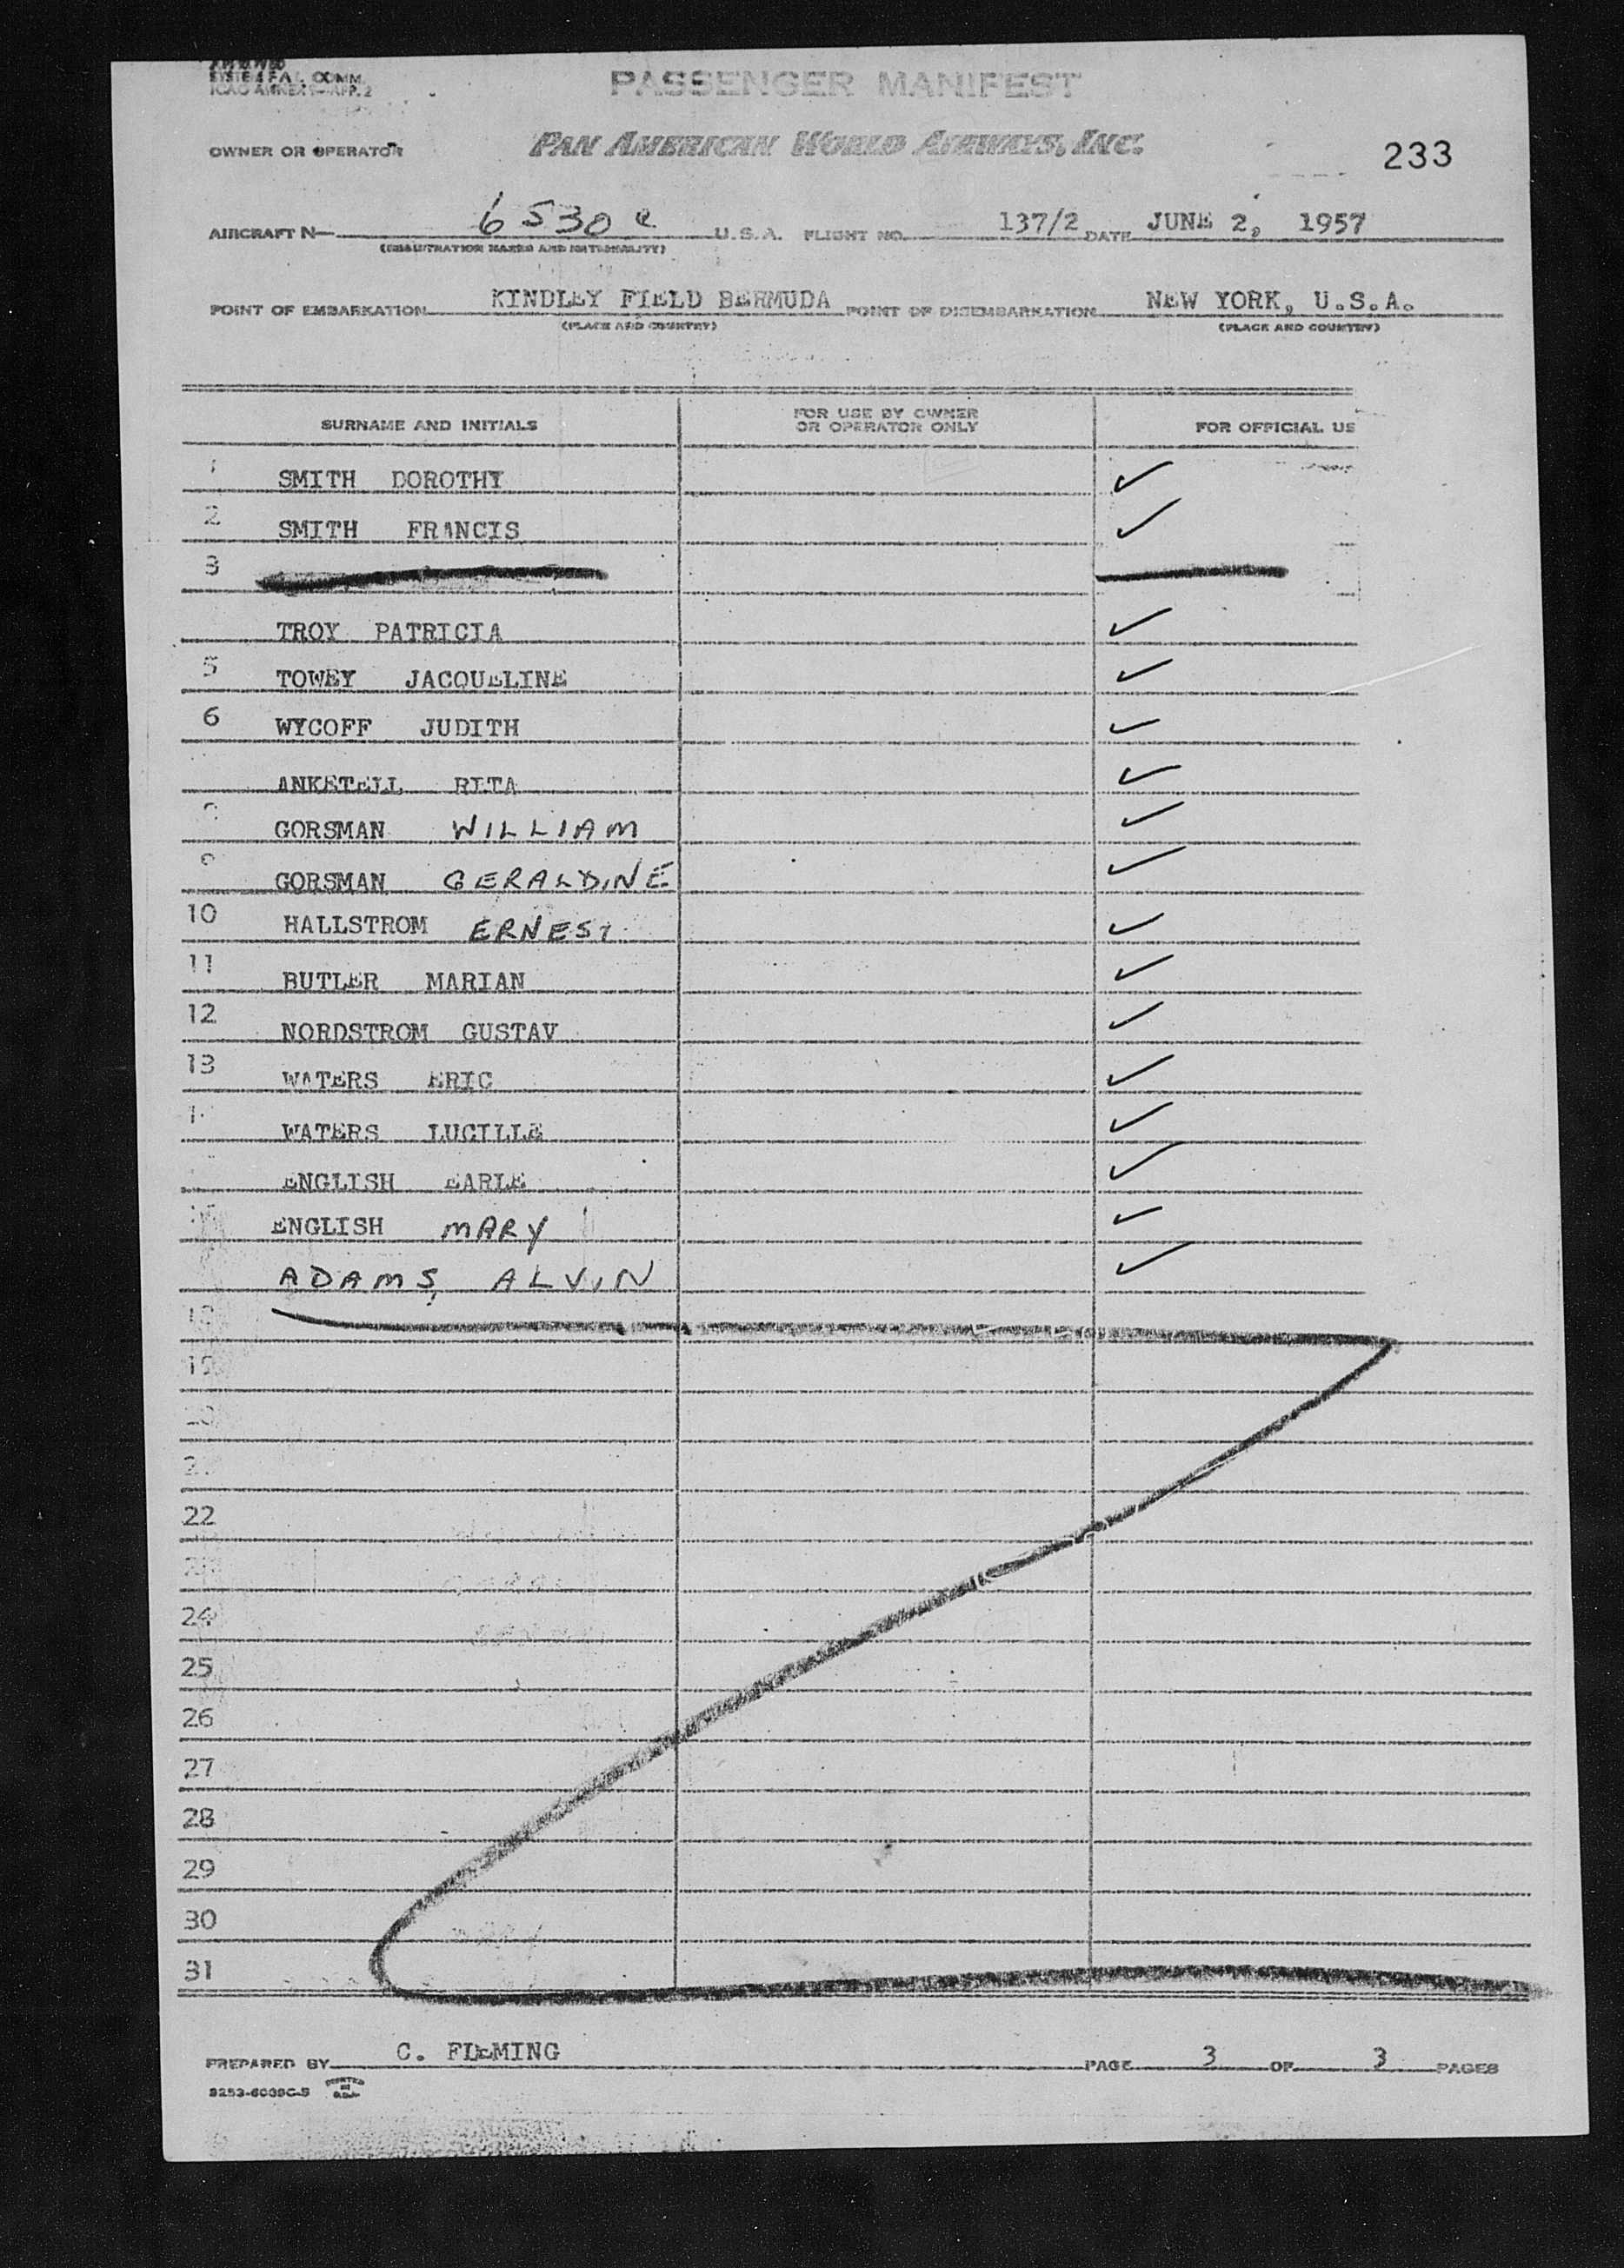 SYSTEM FAL COMM.
ICAO ANNEX 9—APP. 2
PASSENGER MANIFEST
OWNER OR OPERATOR PAN AMERICAN WORLD AIRWAYS, INC. 233
AIRCRAFT N— 6530C U.S.A. FLIGHT NO. 137/2 DATE JUNE 2, 1957
(REGISTRATION MARKS AND NATIONALITY)
POINT OF EMBARKATION KINDLEY FIELD BERMUDA POINT OF DISEMBARKATION NEW YORK, U.S.A.
(PLACE AND COUNTRY) (PLACE AND COUNTRY)
SURNAME AND INITIALS FOR USE BY OWNER OR OPERATOR ONLY FOR OFFICIAL US
1 SMITH DOROTHY ✓
2 SMITH FRANCIS ✓
3
TROY PATRICIA ✓
5 TOWEY JACQUELINE ✓
6 WYCOFF JUDITH ✓
ANKETELL RITA ✓
GORSMAN WILLIAM ✓
GORSMAN GERALDINE ✓
10 HALLSTROM ERNEST ✓
11 BUTLER MARIAN ✓
12 NORDSTROM GUSTAV ✓
13 WATERS ERIC ✓
WATERS LUCILLE ✓
ENGLISH EARLE ✓
ENGLISH MARY ✓
ADAMS, ALVIN ✓
18
19
20
22
24
25
26
27
28
29
30
31
PREPARED BY C. FLEMING PAGE 3 OF 3 PAGES
PRINTED IN U.S.A.